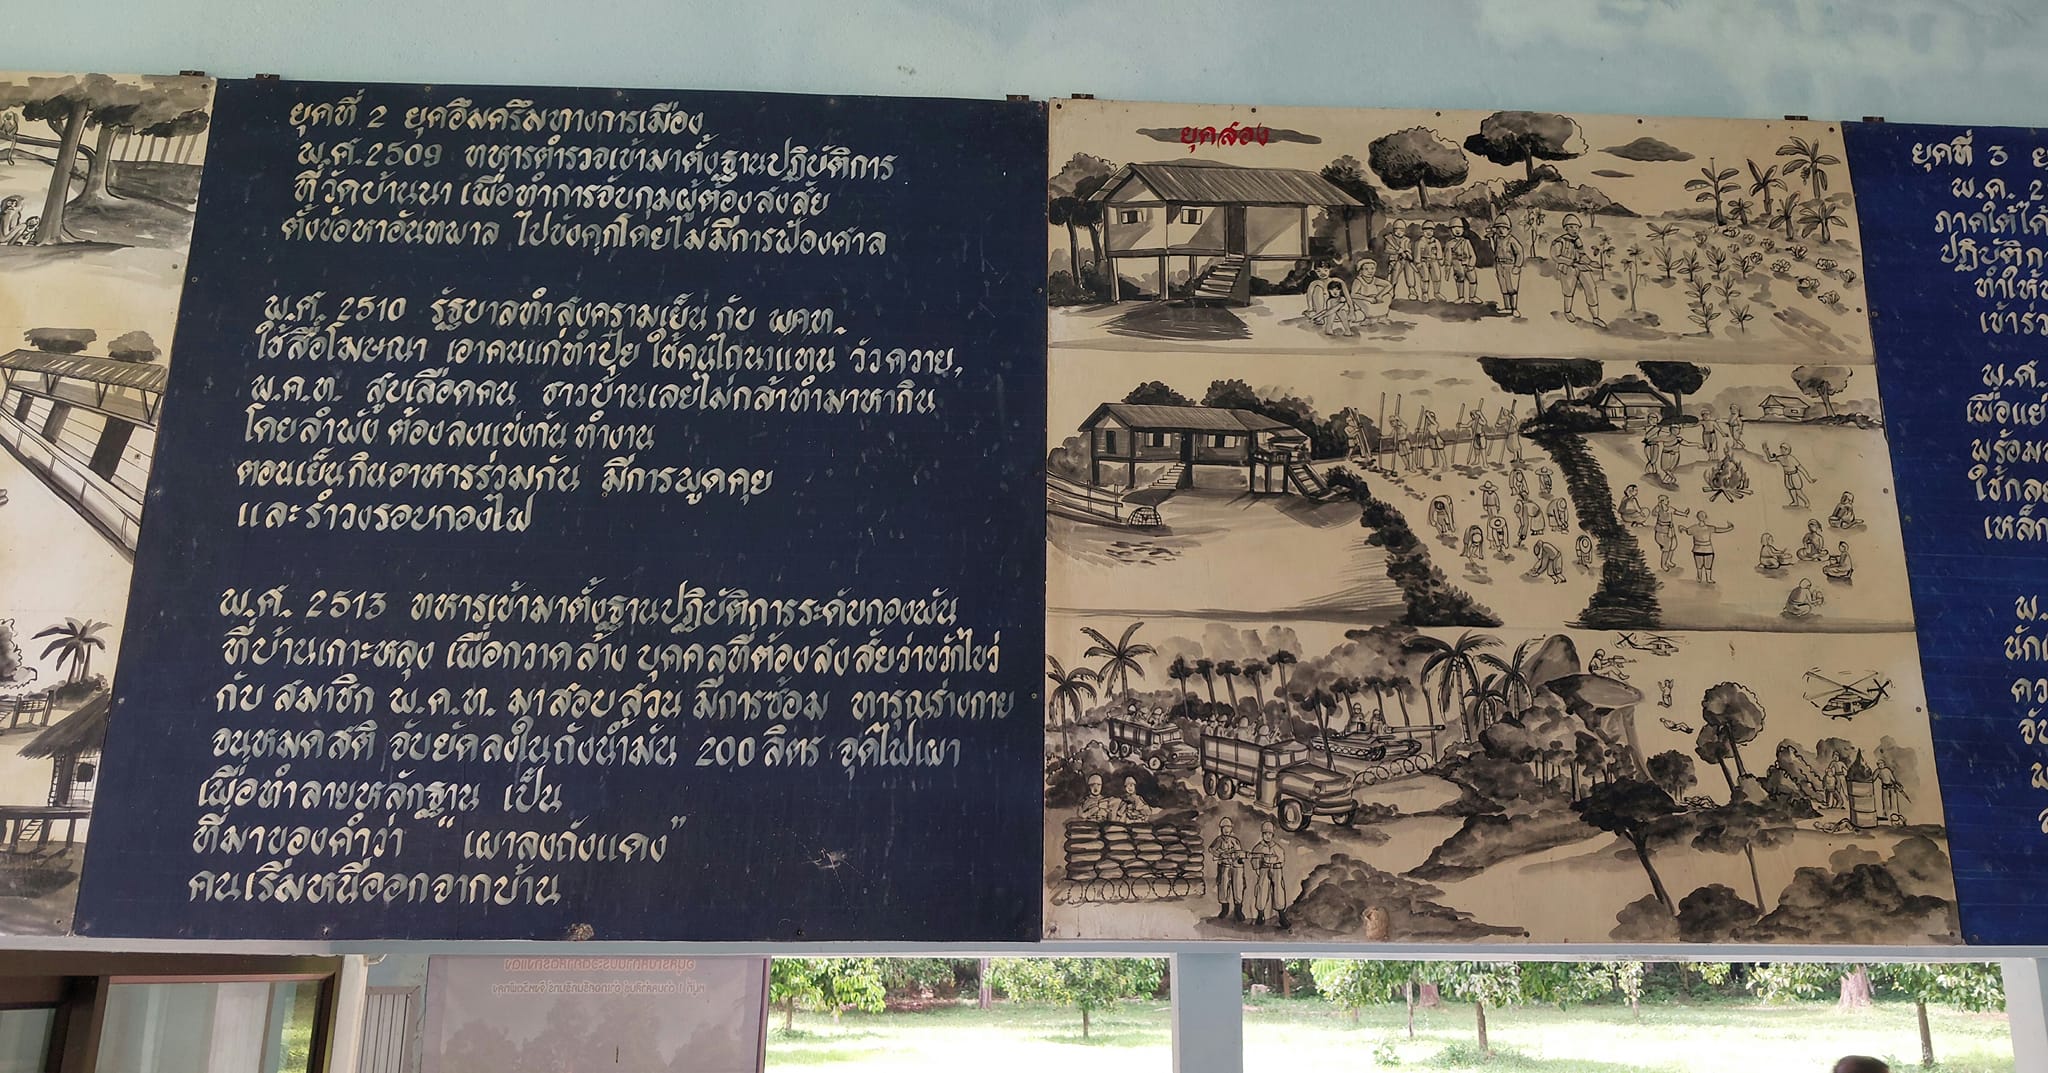 ยุคที่ 2 ยุคอึมครึมทางการเมือง
พ.ศ.2509 ทหารตำรวจเข้ามาตั้งฐานปฏิบัติการ
ที่วัดบ้านนา เพื่อทำการจับกุมผู้ต้องสงสัย
ตั้งข้อหาอันทพาล ไปขังคุกโดยไม่มีการฟ้องศาล
พ.ศ. 2510 รัฐบาลทำสงครามเย็น กับ พคท.
ใช้สื่อโฆษณา เอาคนแก่ทำปุ๋ย ใช้คนไถนาแทน วัวควาย,
พ.ค.ท. สูบเลือดคน ชาวบ้านเลยไม่กล้าทำมาหากิน
โดยลำพัง ต้องลงแข่งกัน ทำงาน
ตอนเย็นกินอาหารร่วมกัน มีการพูดคุย
และรำวงรอบกองไฟ
พ.ศ. 2513 ทหารเข้ามาตั้งฐานปฏิบัติการระดับกองพัน
ที่บ้านเกาะหลุง เพื่อกวาดล้าง บุคคลที่ต้องสงสัยว่าขวักไขว่
กับ สมาชิก พ.ค.ท. มาสอบสวน มีการซ้อม ทารุณร่างกาย
จนหมดสติ จับยัดลงในถังน้ำมัน 200 ลิตร จุดไฟเผา
เพื่อทำลายหลักฐาน เป็น
ที่มาของคำว่า "เผาลงถังแดง"
คนเริ่มหนีออกจากบ้าน
ยุคสอง
ยุคที่ 3
พ.ศ. 2
ภาคใต้ได้
ทำให้
พ.ศ.